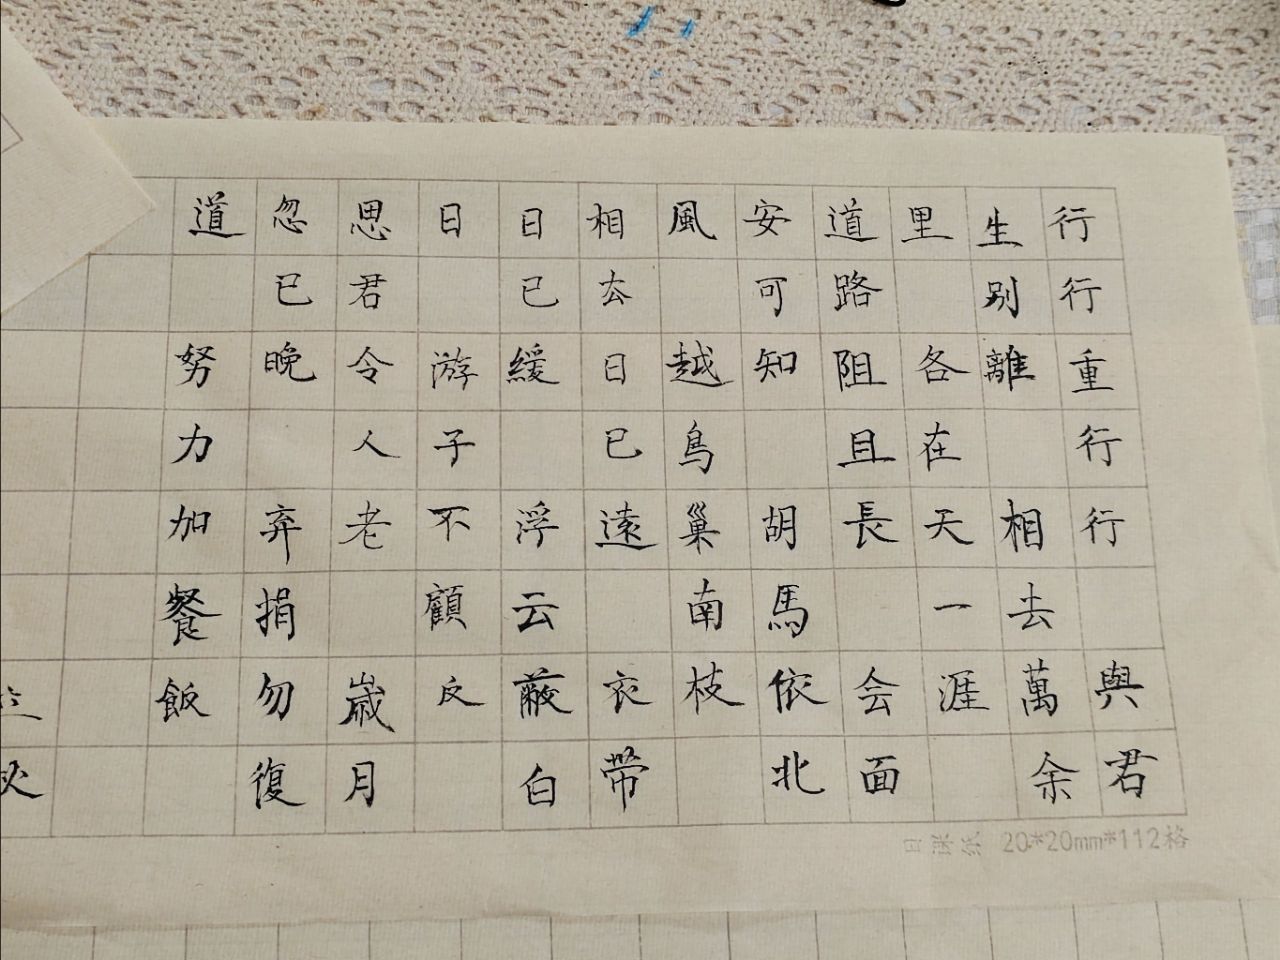 行行重行行 與君
生别離 相去萬余
里 各在天一涯
道路阻且長 会面
安可知 胡馬依北
風 越鳥巢南枝
相去日已遠 衣帶
日已緩 浮云蔽白
日 游子不顧反
思君令人老 歲月
忽已晚 弃捐勿復
道 努力加餐飯
日课纸 20*20mm*112格